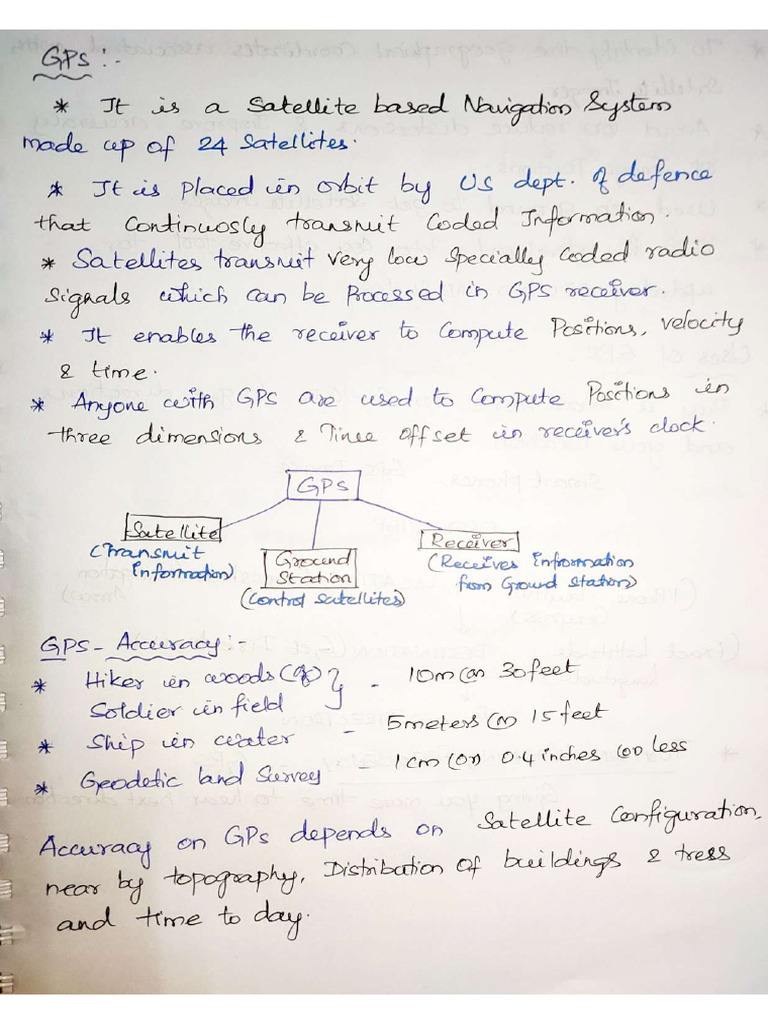 GPS :-
* It is a Satellite based Navigation System
made up of 24 Satellites.
* It is placed in orbit by US dept. of defence
that Continuosly transmit Coded Information.
* Satellites transmit very low Specially Coded radio
signals which can be Processed in GPS receiver.
* It enables the receiver to Compute Positions, velocity
& time.
* Anyone with GPS are used to Compute Positions in
three dimensions & Time Offset in receiver's clock.
GPS
Satellite
(Transmit
Information)
Ground
Station
(Control Satellites)
Receiver
(Receives Information
from Ground Station)
GPS - Accuracy :-
* Hiker in woods (or) } - 10m (or) 30 feet
Soldier in field
* Ship in water - 5 meters (or) 15 feet
* Geodetic land Survey - 1cm (or) 0.4 inches (or) less
Accuracy on GPS depends on Satellite Configuration,
near by topography, Distribution of buildings & tress
and time to day.